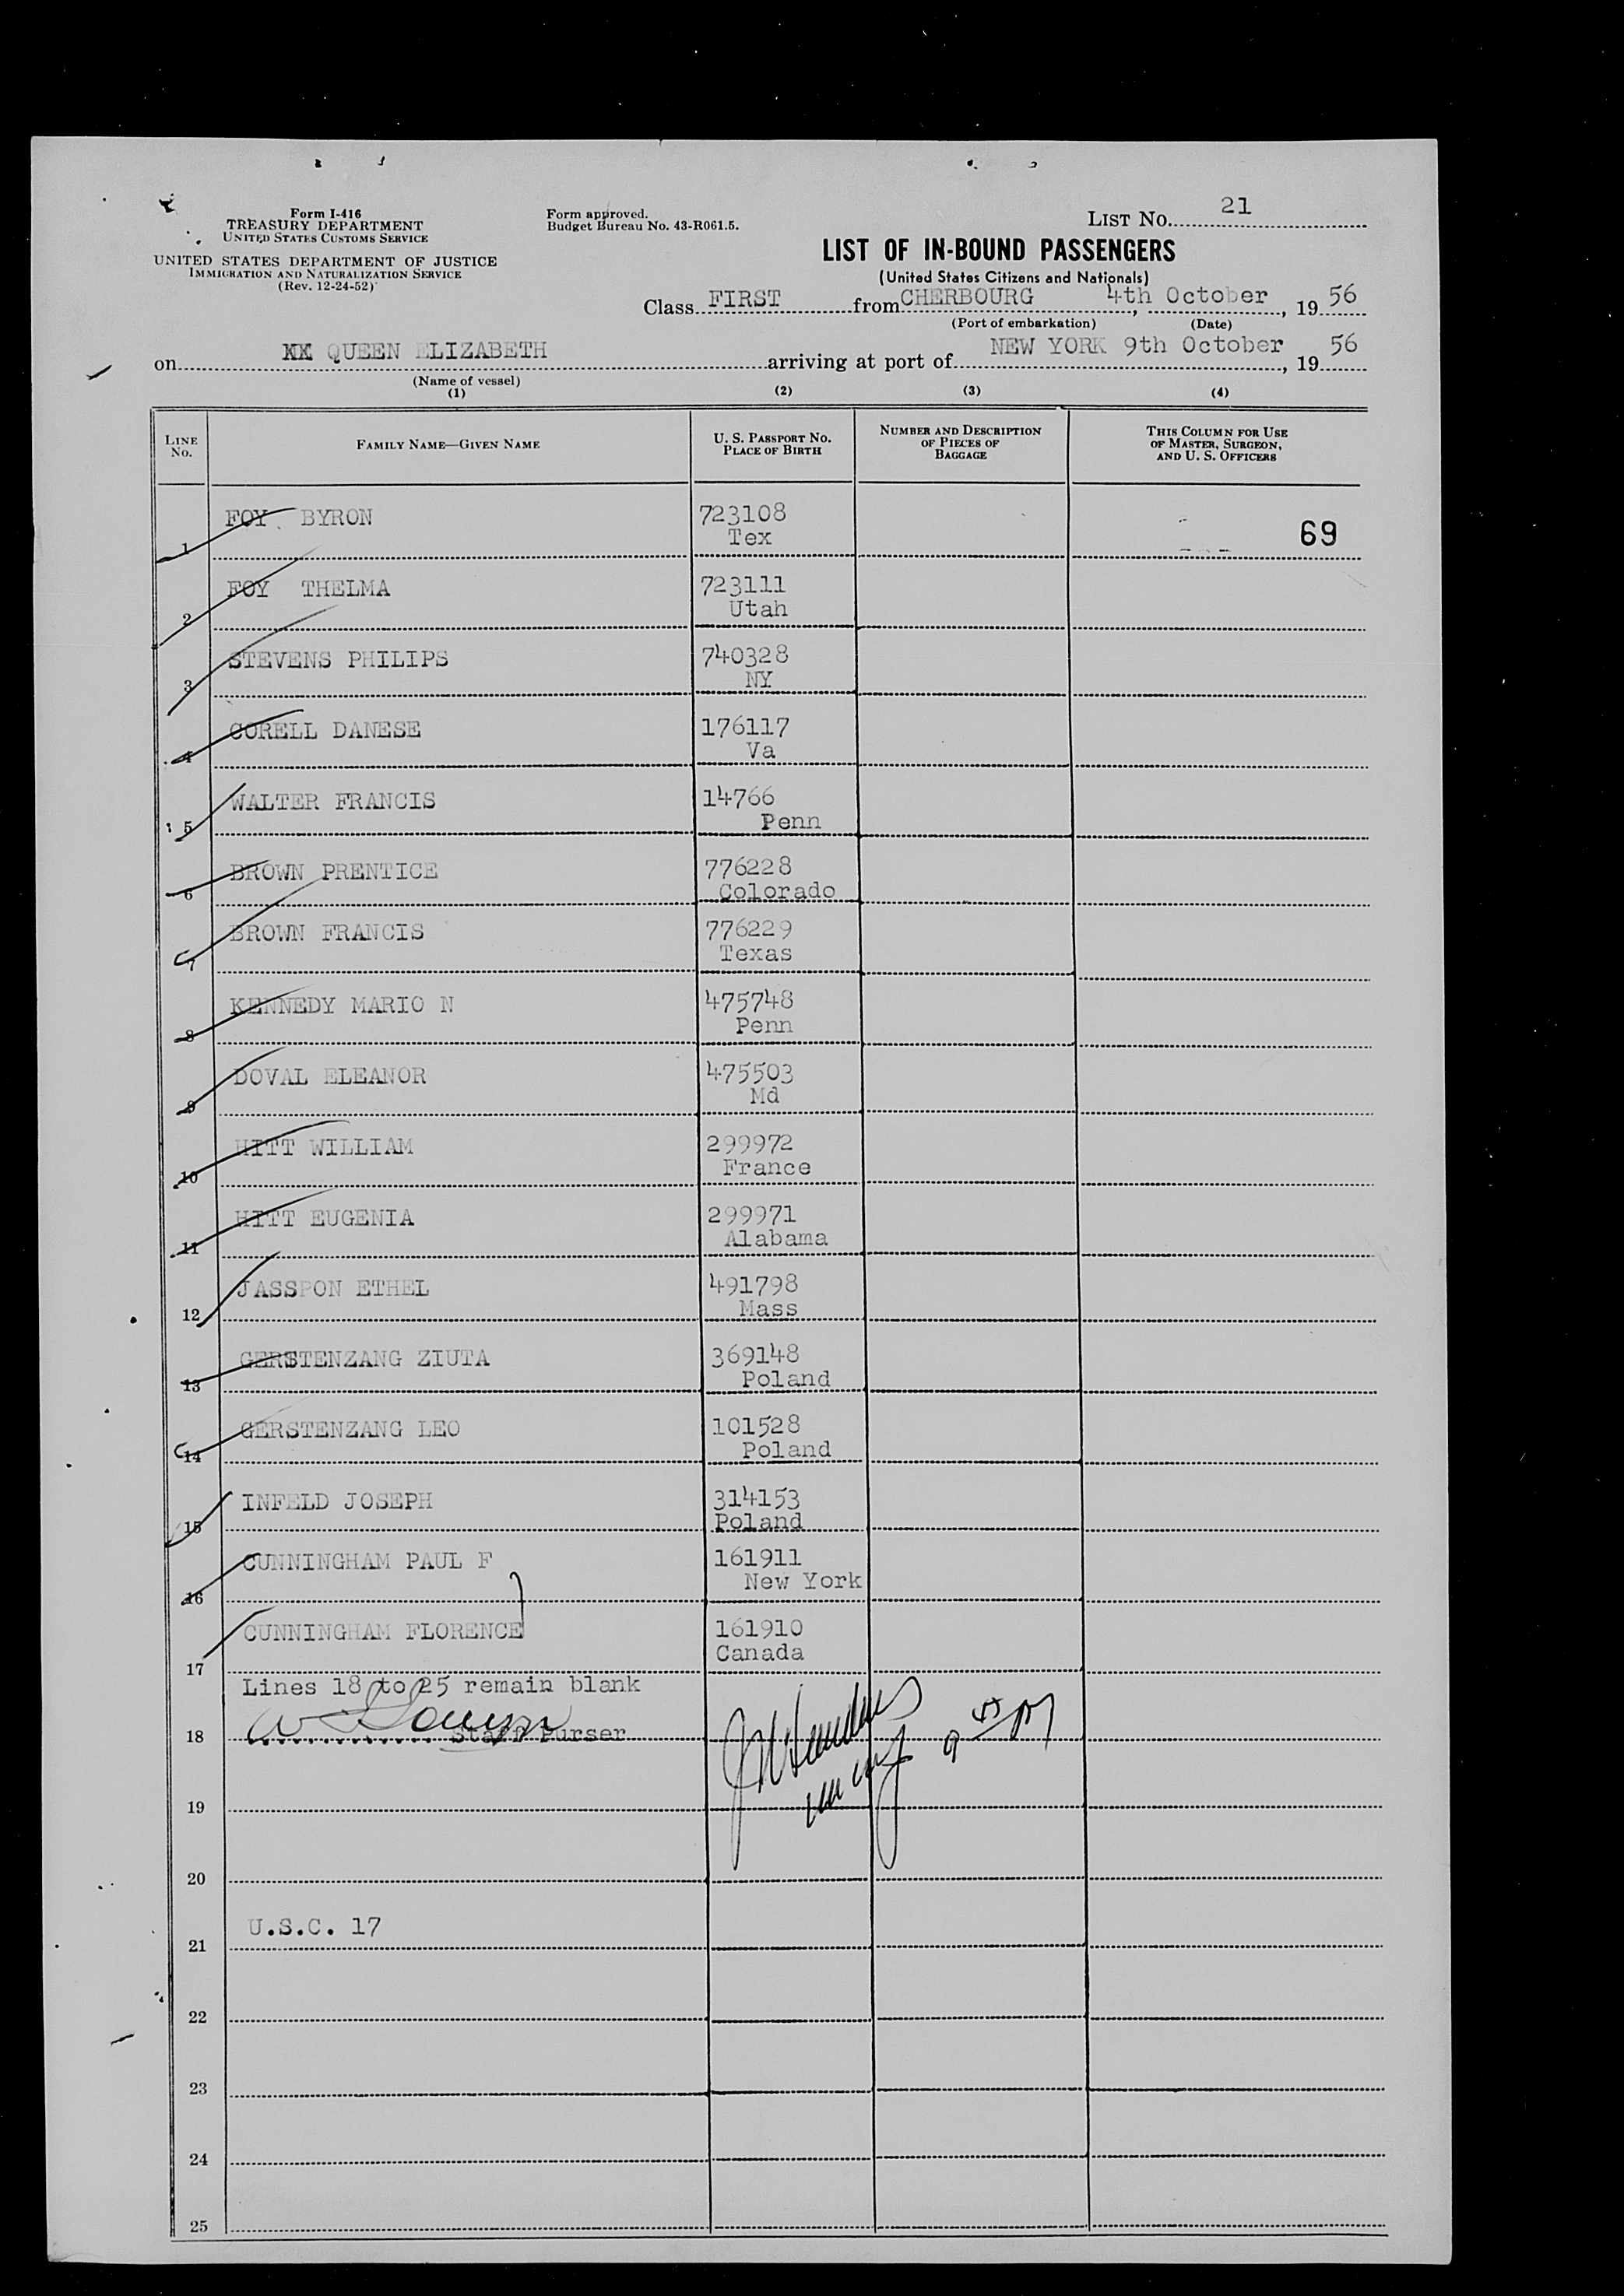 Form I-416
TREASURY DEPARTMENT
UNITED STATES CUSTOMS SERVICE
UNITED STATES DEPARTMENT OF JUSTICE
IMMIGRATION AND NATURALIZATION SERVICE
(Rev. 12-24-52)
Form approved.
Budget Bureau No. 43-R061.5.
LIST No. 21
LIST OF IN-BOUND PASSENGERS
(United States Citizens and Nationals)
Class FIRST from CHERBOURG, 4th October, 19 56
(Port of embarkation) (Date)
on QUEEN ELIZABETH arriving at port of NEW YORK 9th October, 19 56
(Name of vessel)
(1) (2) (3) (4)
LINE No. FAMILY NAME—GIVEN NAME U. S. PASSPORT NO. PLACE OF BIRTH NUMBER AND DESCRIPTION OF PIECES OF BAGGAGE THIS COLUMN FOR USE OF MASTER, SURGEON, AND U. S. OFFICERS
1 FOY BYRON 723108 69
Tex
2 FOY THELMA 723111
Utah
3 STEVENS PHILIPS 740328
NY
4 CORELL DANESE 176117
Va
5 WALTER FRANCIS 14766
Penn
6 BROWN PRENTICE 776228
Colorado
7 BROWN FRANCIS 776229
Texas
8 KENNEDY MARIO N 475748
Penn
9 DOVAL ELEANOR 475503
Md
10 HITT WILLIAM 299972
France
11 HITT EUGENIA 299971
Alabama
12 JASSPON ETHEL 491798
Mass
13 GERSTENZANG ZIUTA 369148
Poland
14 GERSTENZANG LEO 101528
Poland
15 INFELD JOSEPH 314153
Poland
16 CUNNINGHAM PAUL F 161911
New York
17 CUNNINGHAM FLORENCE 161910
Canada
Lines 18 to 25 remain blank
18 Staff Purser
19
20
21 U.S.C. 17
22
23
24
25